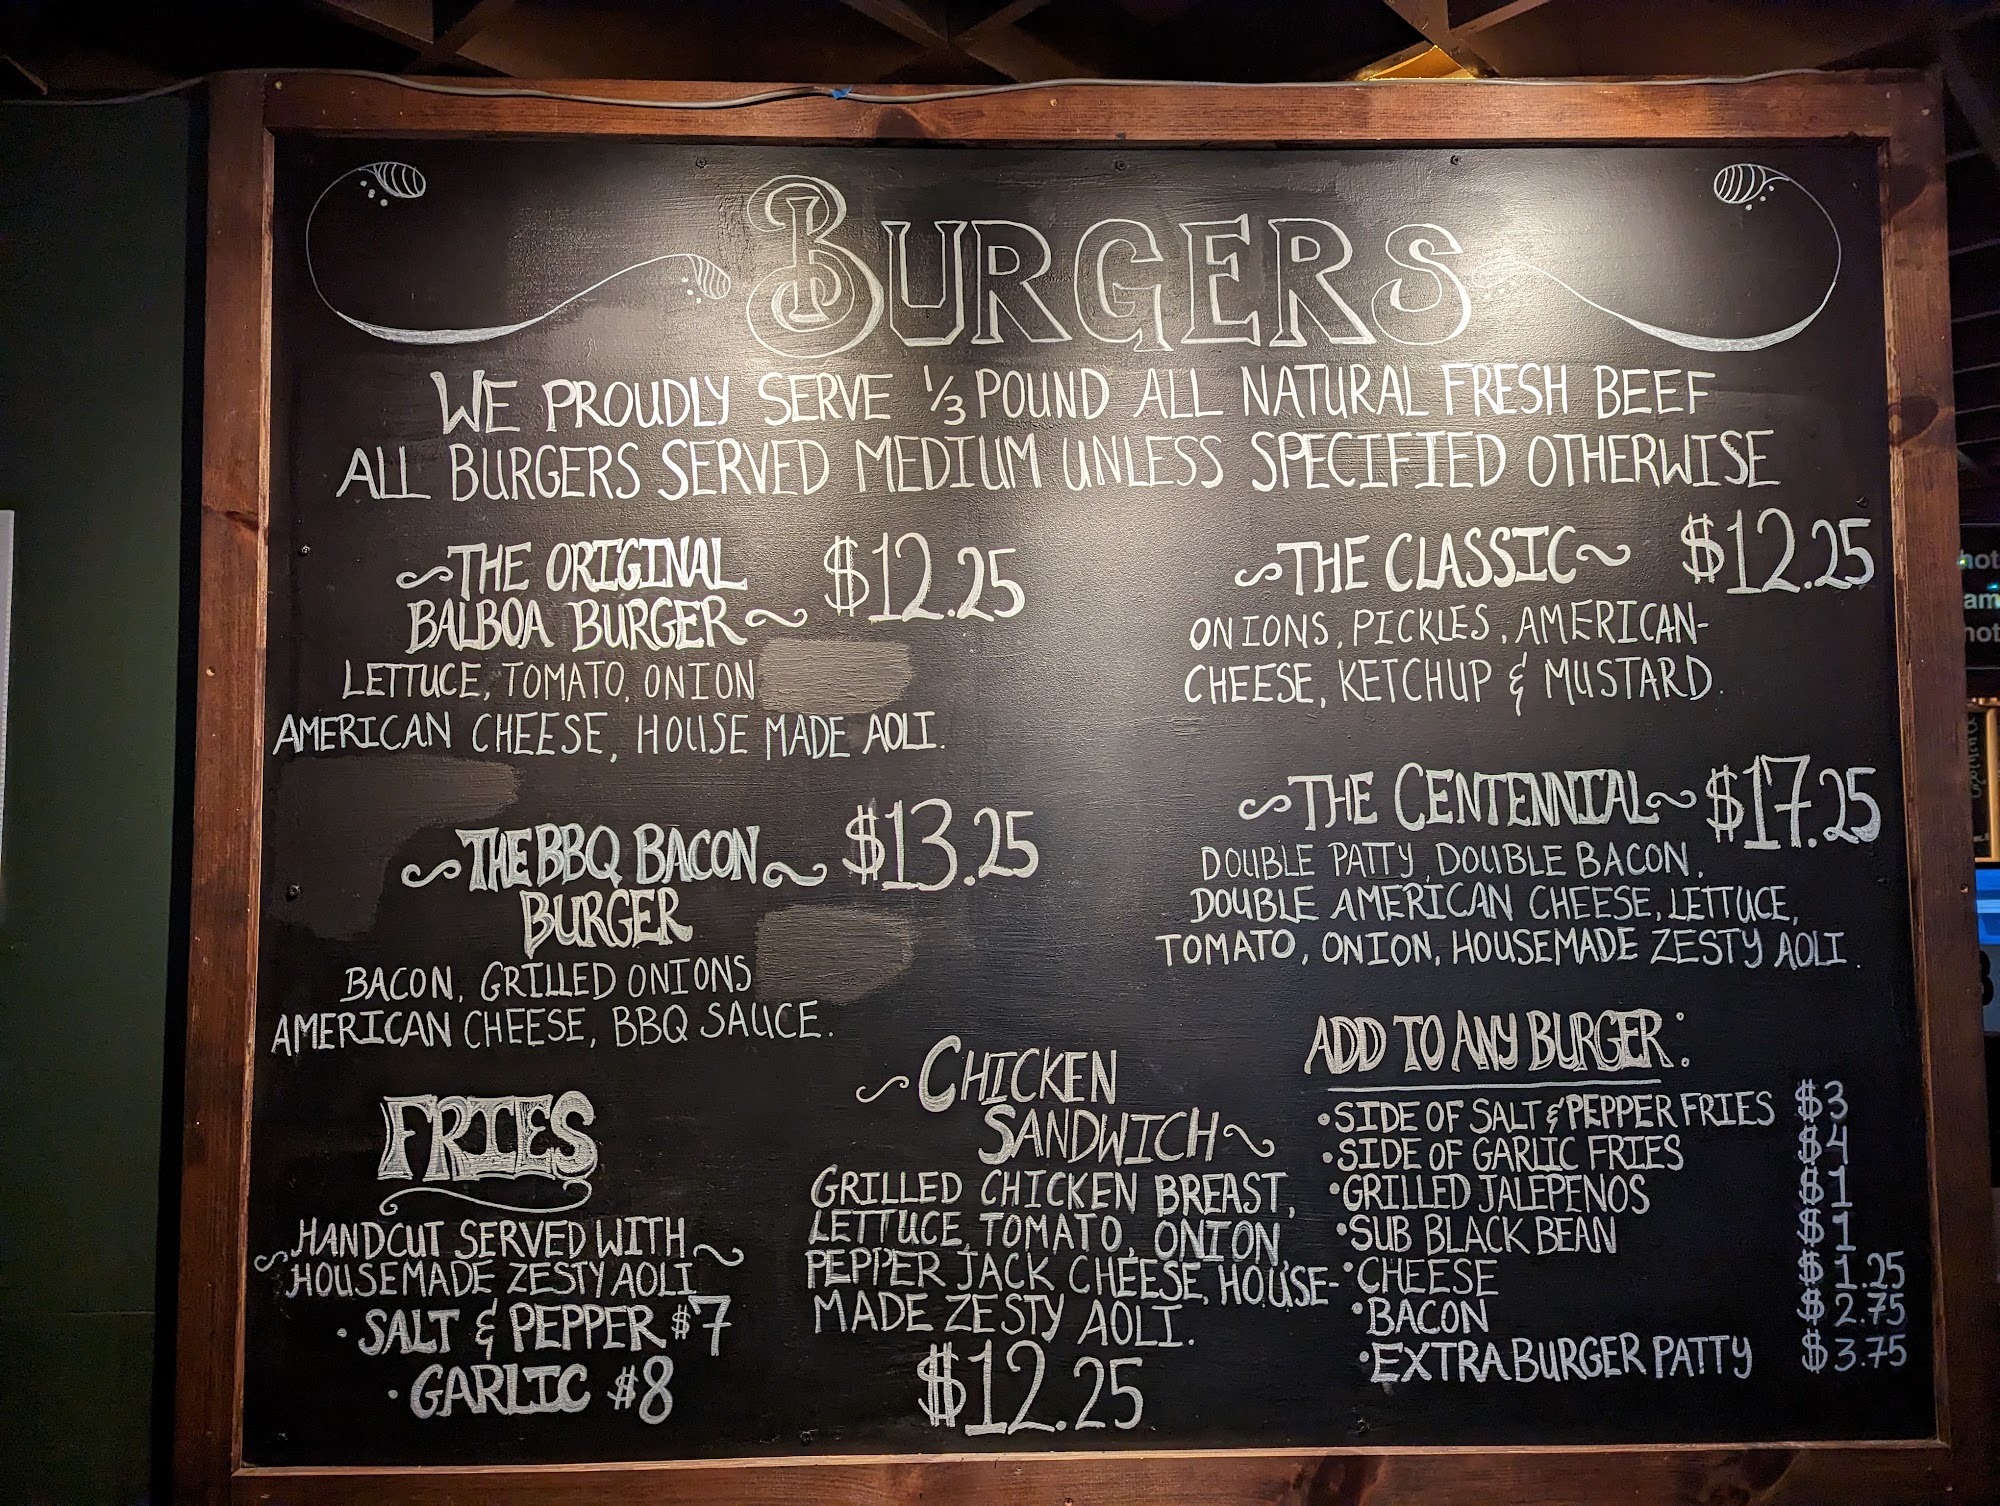 BURGERS
WE PROUDLY SERVE 1/3 POUND ALL NATURAL FRESH BEEF
ALL BURGERS SERVED MEDIUM UNLESS SPECIFIED OTHERWISE
THE ORIGINAL
BALBOA BURGER $12.25
LETTUCE, TOMATO, ONION
AMERICAN CHEESE, HOUSE MADE AOLI.
THE BBQ BACON $13.25
BURGER
BACON, GRILLED ONIONS
AMERICAN CHEESE, BBQ SAUCE.
FRIES
HANDCUT SERVED WITH
HOUSEMADE ZESTY AOLI
• SALT & PEPPER $7
• GARLIC $8
CHICKEN
SANDWICH
GRILLED CHICKEN BREAST,
LETTUCE, TOMATO, ONION,
PEPPER JACK CHEESE, HOUSE-
MADE ZESTY AOLI.
$12.25
THE CLASSIC $12.25
ONIONS, PICKLES, AMERICAN-
CHEESE, KETCHUP & MUSTARD.
THE CENTENNIAL $17.25
DOUBLE PATTY, DOUBLE BACON,
DOUBLE AMERICAN CHEESE, LETTUCE,
TOMATO, ONION, HOUSEMADE ZESTY AOLI.
ADD TO ANY BURGER:
• SIDE OF SALT & PEPPER FRIES $3
• SIDE OF GARLIC FRIES $4
• GRILLED JALEPENOS $1
• SUB BLACK BEAN $1
• CHEESE $1.25
• BACON $2.75
• EXTRA BURGER PATTY $3.75